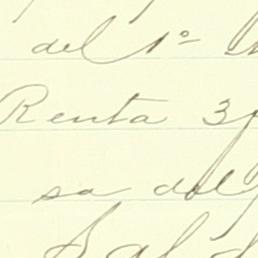 del 1º
Renta 3
sa del
Sald